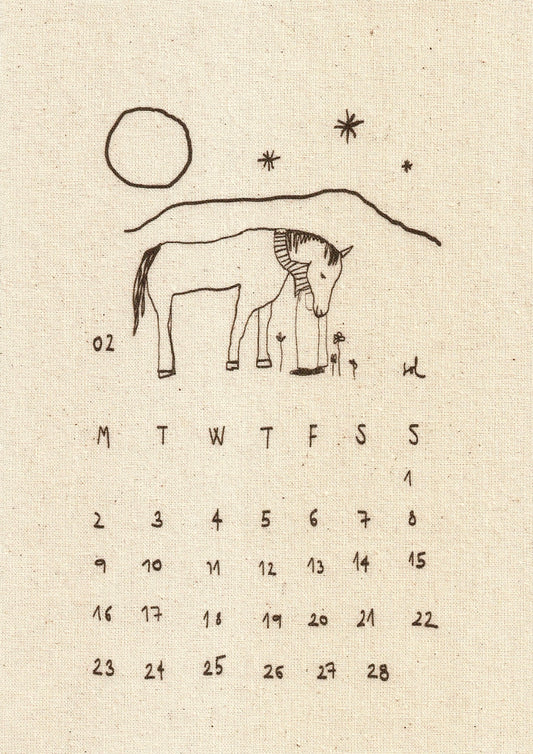 02
sol
M T W T F S S
1
2 3 4 5 6 7 8
9 10 11 12 13 14 15
16 17 18 19 20 21 22
23 24 25 26 27 28